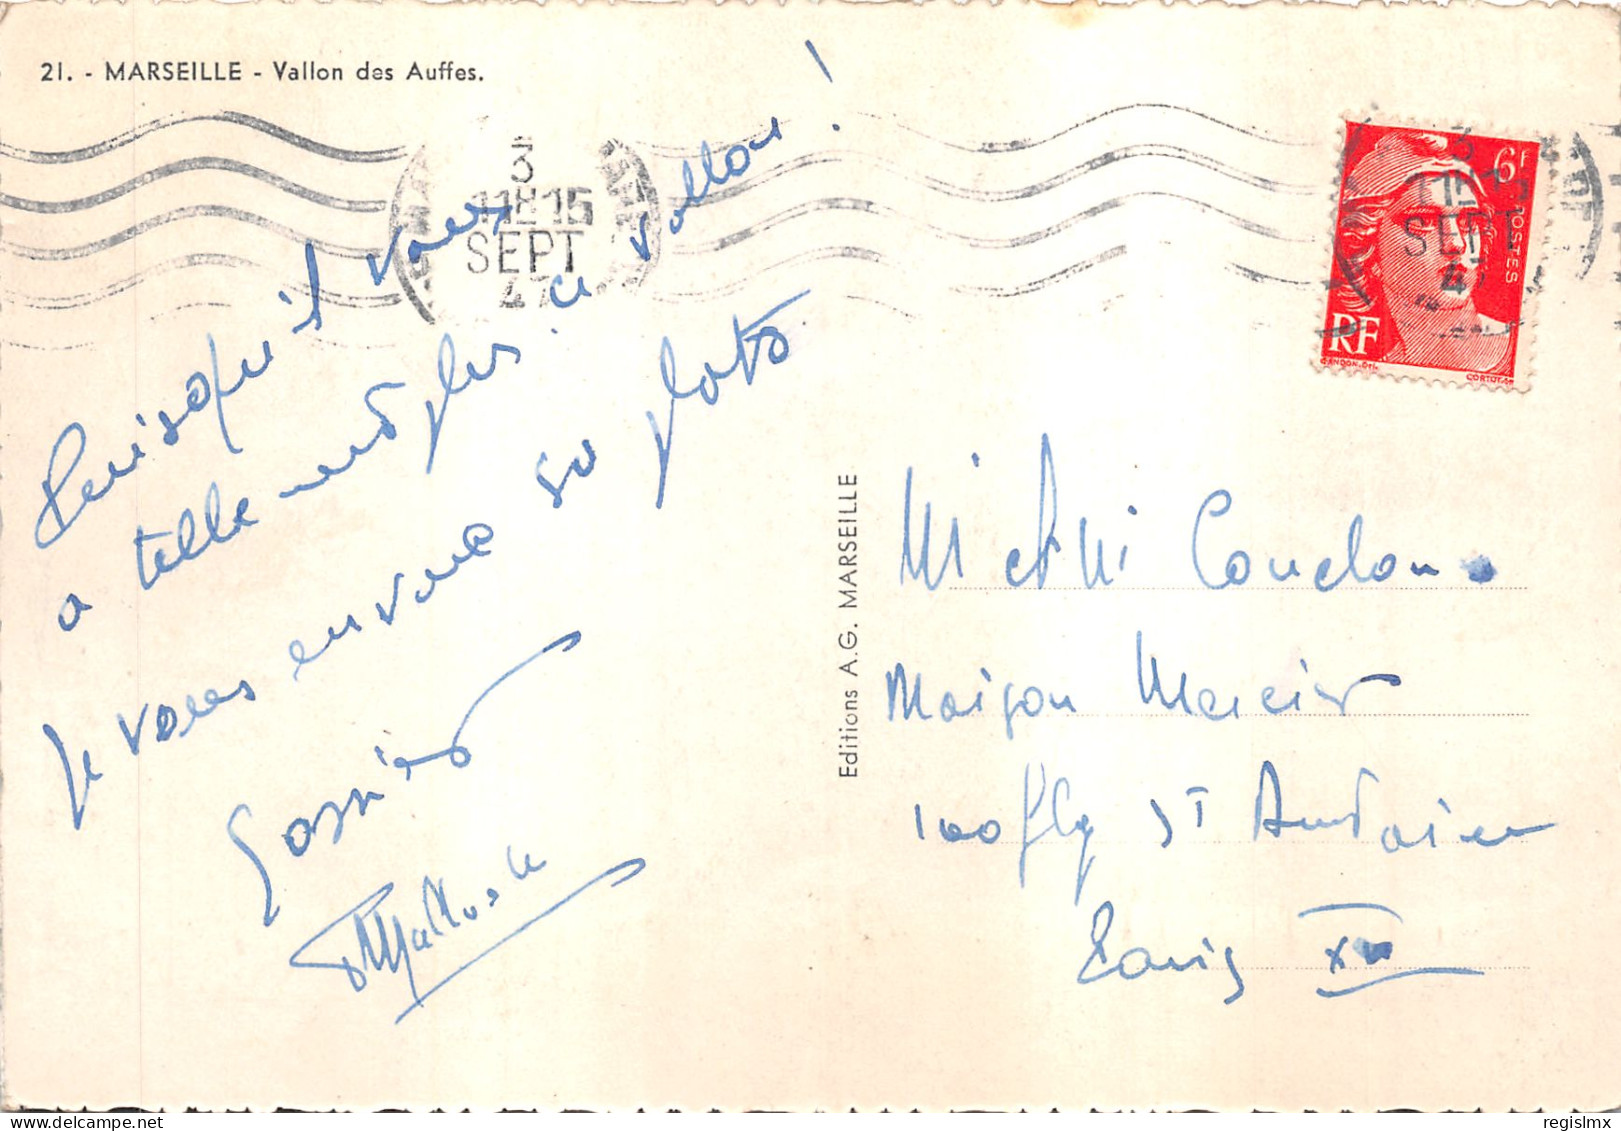 21. - MARSEILLE - Vallon des Auffes.
3
11H15
SEPT
47
6F
POSTES
RF
GANDON.Del.
CORTOT.sc
Puisqu'il vous
a tellement plu ce vallon !
je vous envoie sa photo
Editions A.G. MARSEILLE
M et Mme
Maison Mercier
100 fbg St Antoine
Paris XII
delcampe.net
regislmx